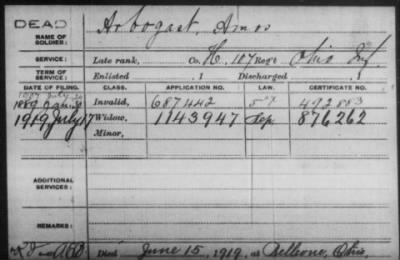 DEAD
NAME OF SOLDIER: Arbogast, Amos
SERVICE: Late rank, Co. H, 107 Reg't Ohio Inf.
TERM OF SERVICE: Enlisted , 1 Discharged , 1
DATE OF FILING. CLASS. APPLICATION NO. LAW. CERTIFICATE NO.
1887 July
1889 Jan 30 Invalid, 687442 492883
1919 July 17 Widow, 1143947 Sep. 876262
Minor,
ADDITIONAL SERVICES:
REMARKS:
Died June 15, 1919, at Bellevue, Ohio,